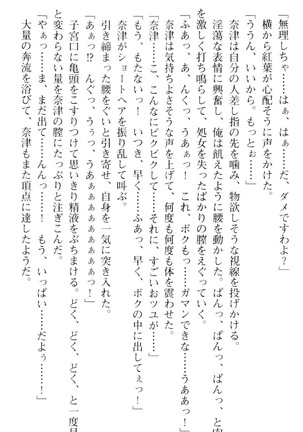 「無理しちゃ……はぁ、はぁ……だ、ダメですわよ？」
横から紅葉が心配そうに声をかけた。
「ううん、いいから。もっと……」
奈津は自分の人差し指の先を噛み、物欲しそうな視線を投げかける。
淫蕩な表情に興奮し、俺は飢えたように腰を動かした。ぱんっ、ぱんっ、ぱんっ、と肉
を激しく打ち鳴らして、処女を失ったばかりの膣をえぐっていく。
「ふあっ、あ、んくっ、うあぁっ！　これ、ボクもっ……ガマンできな……うああっ！」
奈津は気持ちよさそうな声を上げて、何度も何度も体を震わせた。
「奈津……こ、こんなにビクビクして……それに、すごいおツユが……」
「もう、もたないっ！　いつき、早く……ふあっ、早く、ボクの中に出してぇっ！」
奈津がショートヘアを振り乱して叫ぶ。
引き締まった腰をぐいと引き寄せ、自身を一気に突き入れた。
「あぁっ！？　んぐっ、うぅっ、うあぁぁぁぁぁぁぁぁぁっ！」
子宮口に亀頭をこすりつけて思いきり精液をぶちまける。どく、どく、どく、と一度目
と変わらない量を奈津の膣にたっぷりと注ぎこんだ。
「やぁっ……ま、まだ出て……んんっ！　もう、いっぱい……だよぅ……！」
大量の奔流を浴びて、奈津もまた頂点に達したようだ。